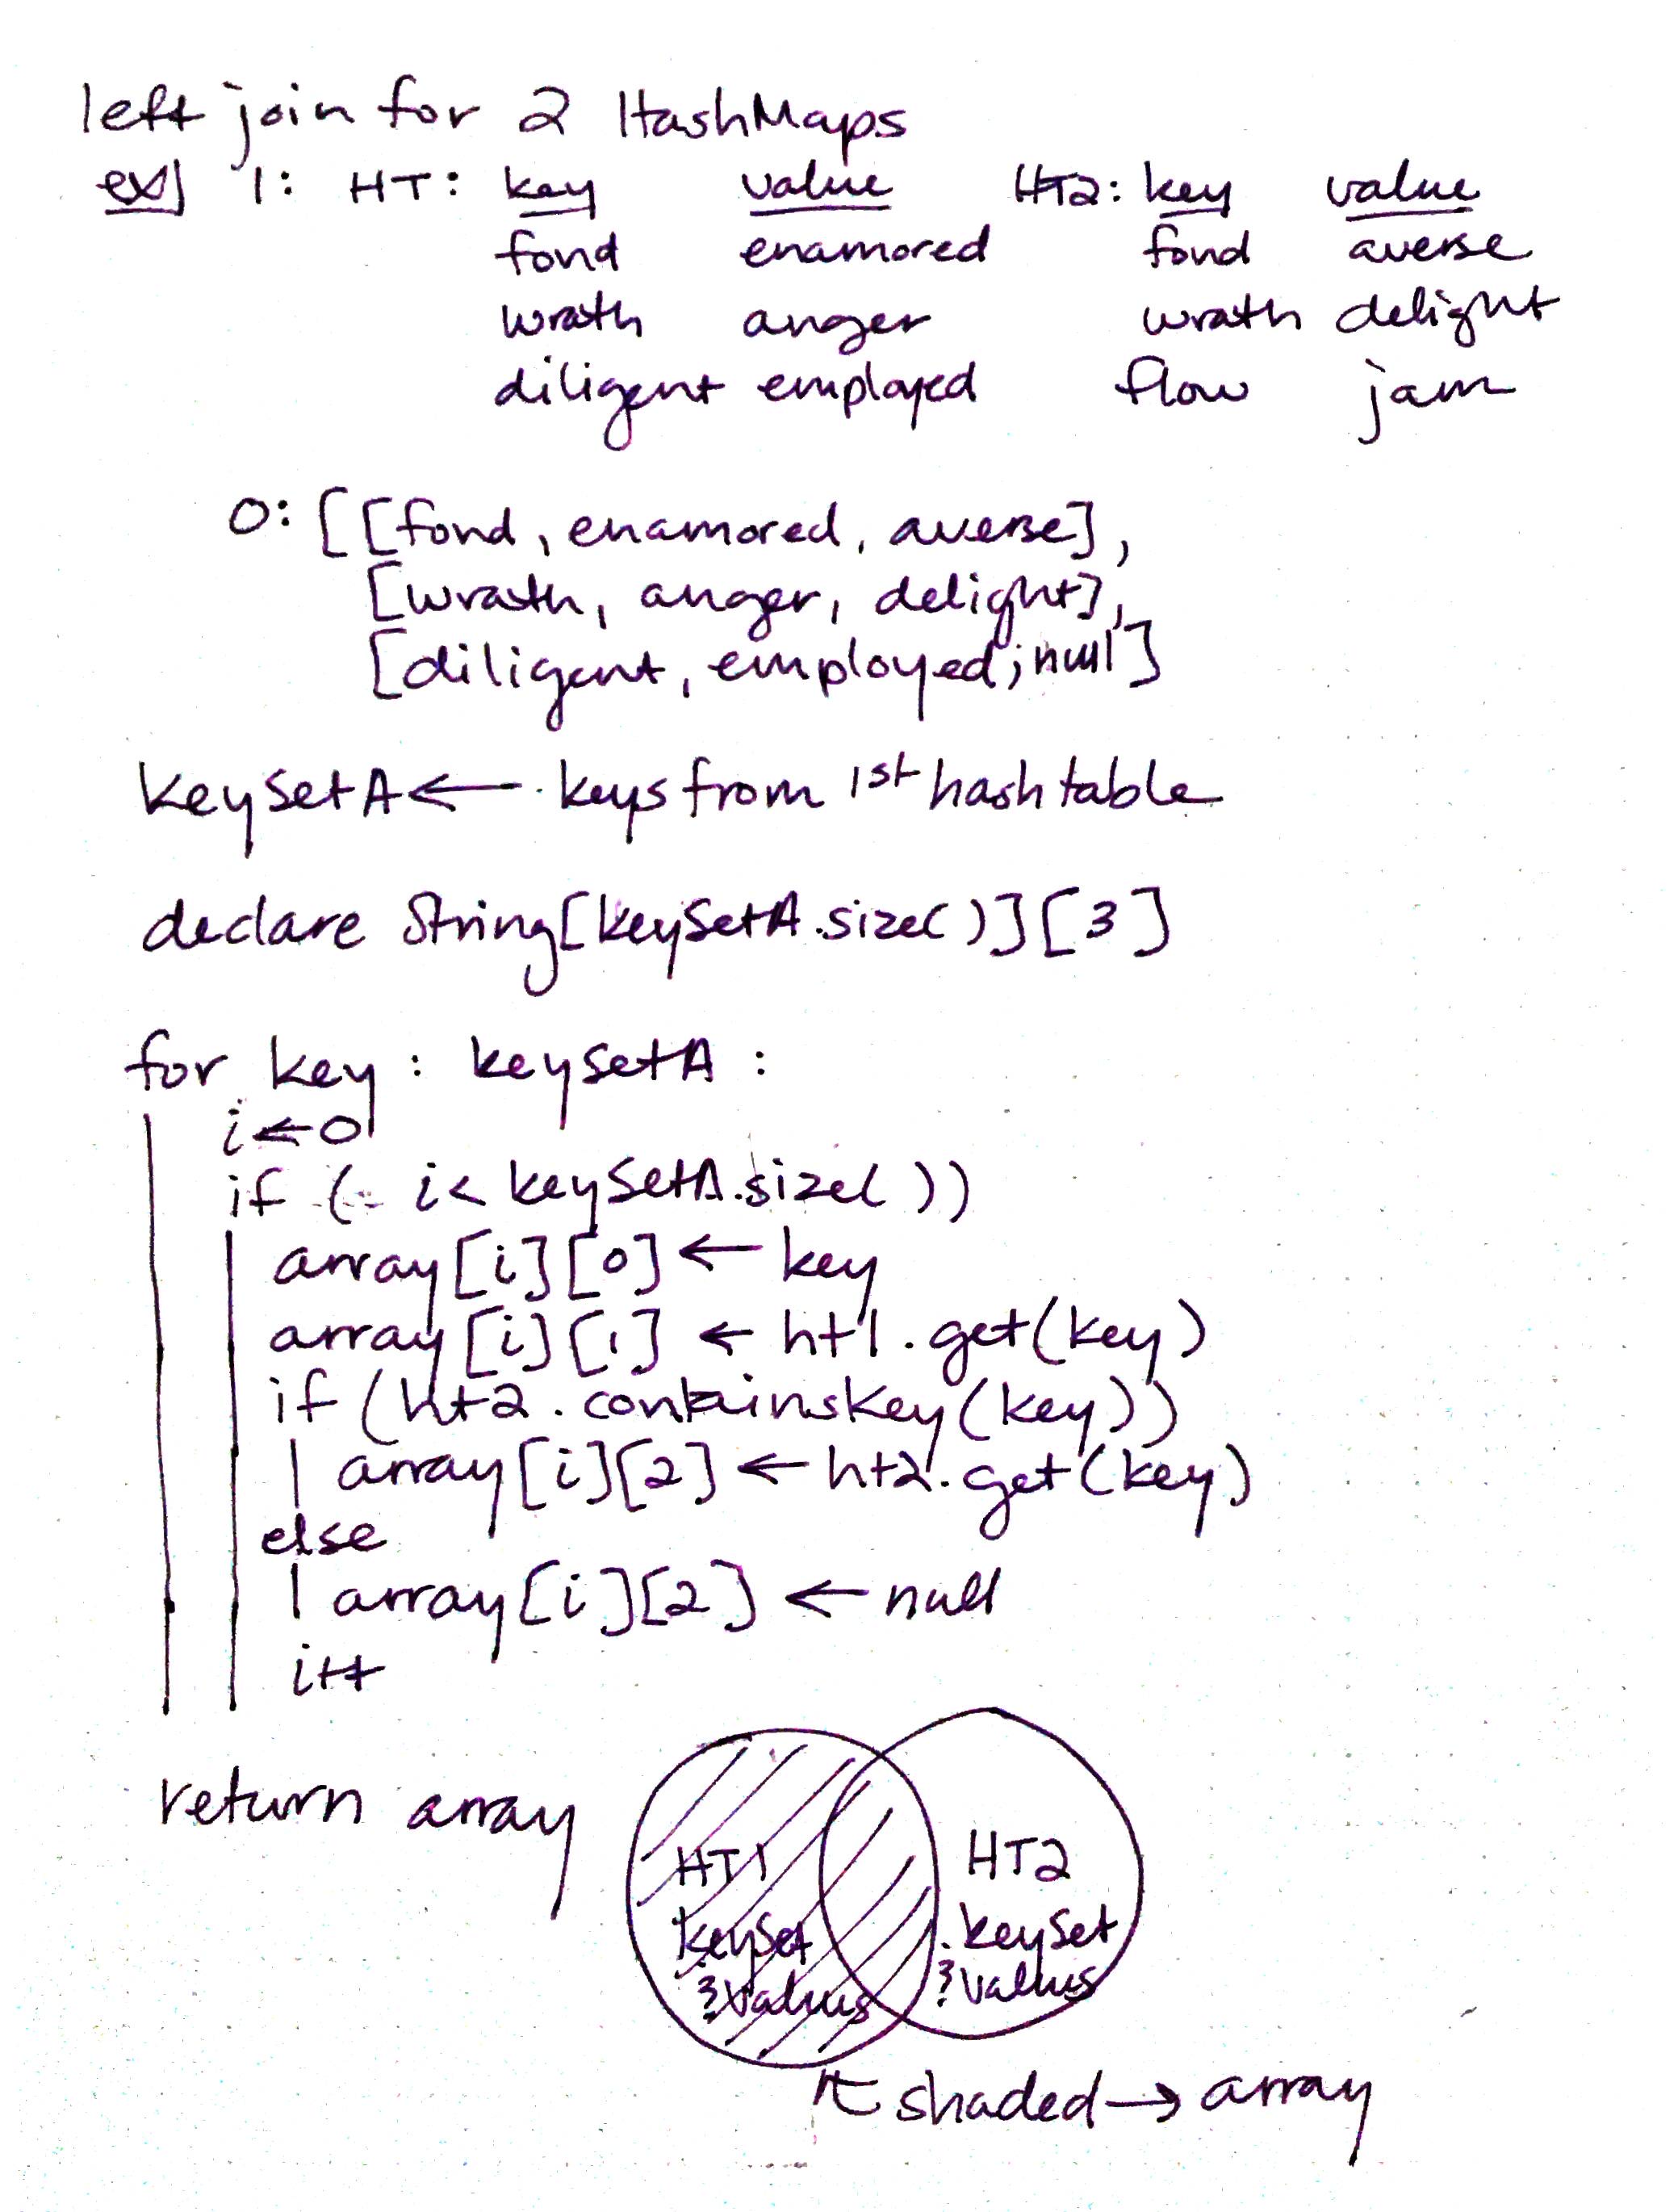 left join for 2 HashMaps
ex] I: HT: key value HT2: key value
fond enamored fond averse
wrath anger wrath delight
diligent employed flow jam
O: [[fond, enamored, averse],
[wrath, anger, delight],
[diligent, employed, null]
keySetA ← keys from 1st hashtable
declare String[keySetA.size()][3]
for key : keySetA :
i ← 0
if ( i < keySetA.size())
array[i][0] ← key
array[i][1] ← ht1.get(key)
if (ht2.containsKey(key))
array[i][2] ← ht2.get(key)
else
array[i][2] ← null
i++
return array
HT1 HT2
keySet .keySet
& values & values
↑ shaded → array